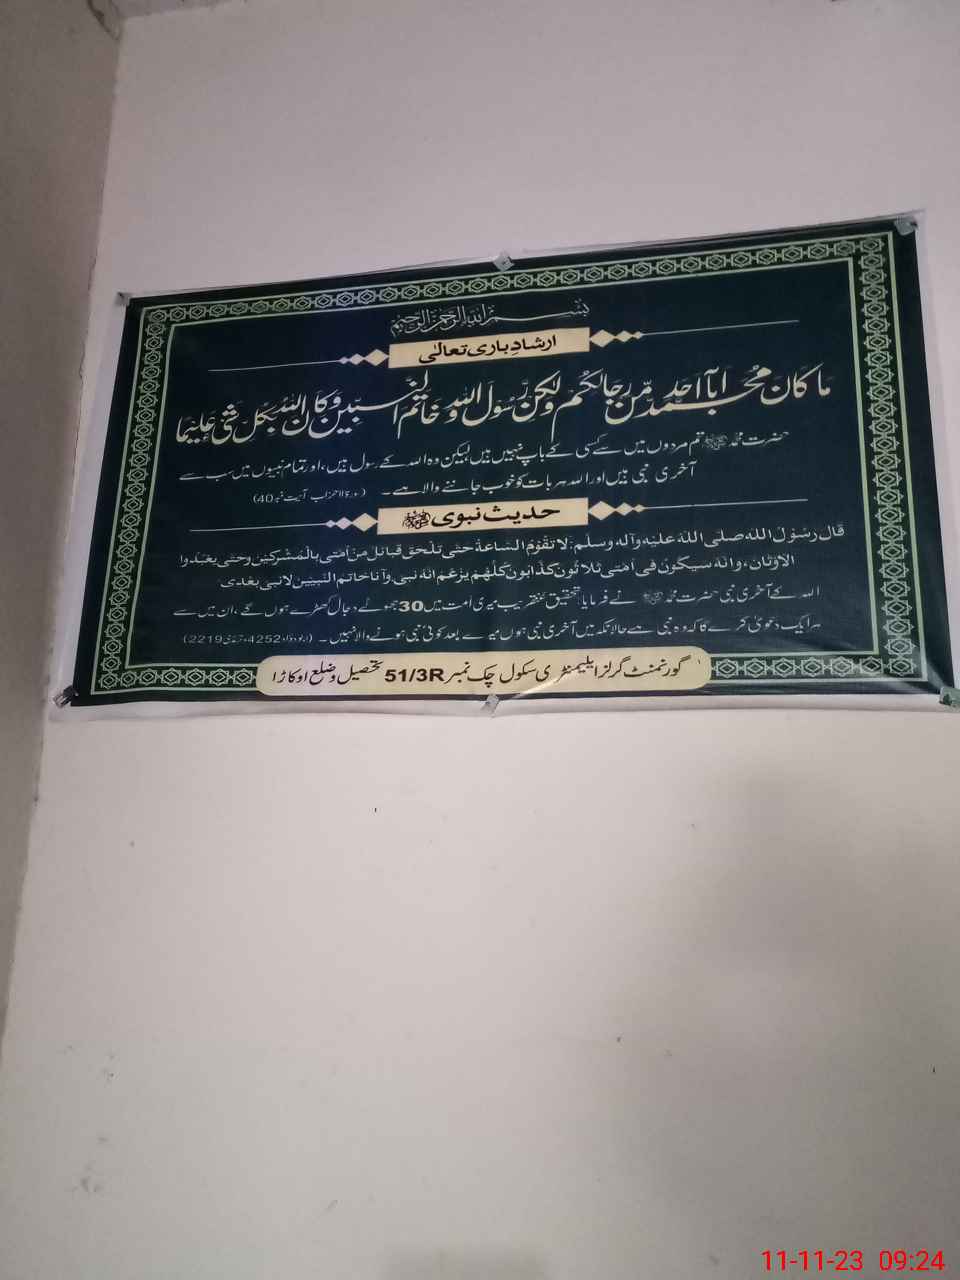 بسم الله الرحمن الرحیم
ارشادِ باری تعالیٰ
مَا كَانَ مُحَمَّدٌ اَبَآ اَحَدٍ مِّنْ رِّجَالِكُمْ وَلٰكِنْ رَّسُوْلَ اللّٰهِ وَ خَاتَمَ النَّبِیّٖنَ وَكَانَ اللّٰهُ بِكُلِّ شَیْءٍ عَلِیْمًا
حضرت محمد ﷺ تم مردوں میں سے کسی کے باپ نہیں ہیں لیکن وہ اللہ کے رسول ہیں، اور تمام نبیوں میں سب سے
آخری نبی ہیں اور اللہ ہر بات کو خوب جاننے والا ہے۔ (سورۃ الاحزاب آیت نمبر 40)
حدیث نبوی ﷺ
قال رسول الله صلى الله عليه وآله وسلم: لا تقوم الساعة حتى تلحق قبائل من أمتي بالمشركين وحتى يعبدوا
الاوثان، وانه سيكون في أمتي ثلاثون كذابون كلهم يزعم انه نبي وأنا خاتم النبيين لا نبي بعدي۔
اللہ کے آخری نبی حضرت محمد ﷺ نے فرمایا: تحقیق عنقریب میری امت میں 30 جھوٹے دجال کھڑے ہوں گے، ان میں سے
ہر ایک دعویٰ کرے گا کہ وہ نبی ہے حالانکہ میں آخری نبی ہوں میرے بعد کوئی نبی ہونے والا نہیں۔ (ابوداؤد 4252، ترمذی 2219)
گورنمنٹ گرلز ایلیمنٹری سکول چک نمبر 51/3R تحصیل و ضلع اوکاڑا
11-11-23 09:24